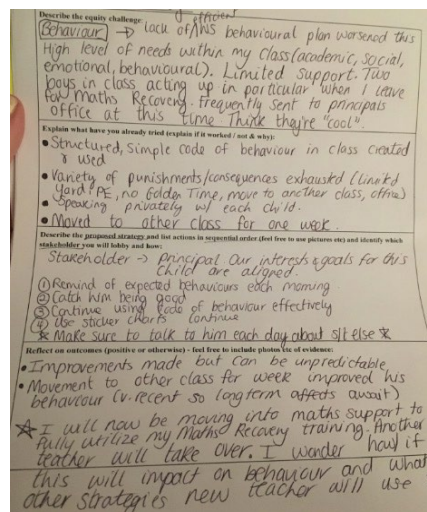 Describe the equity challenge:
efficient
Behaviour → lack of ^ WS behavioural plan worsened this
High level of needs within my class (academic, social,
emotional, behavioural). Limited support. Two
boys in class acting up in particular when I leave
for maths Recovery. Frequently sent to principals
office at this time. Think they're "cool".
Explain what have you already tried (explain if it worked / not & why):
• Structured, Simple code of behaviour in class created
& used
• Variety of punishments/consequences exhausted (limited
Yard, PE, no Golden Time, move to another class, office)
• Speaking privately w/ each child.
• Moved to other class for one week.
Describe the proposed strategy and list actions in sequential order (feel free to use pictures etc) and identify which
stakeholder you will lobby and how:
Stakeholder → principal Our interests & goals for this
child are aligned.
① Remind of expected behaviours each morning
② Catch him being good
③ Continue using code of behaviour effectively
④ Use sticker charts continue
* Make sure to talk to him each day about s/t else *
Reflect on outcomes (positive or otherwise) - feel free to include photos etc of evidence:
• Improvements made but can be unpredictable
• Movement to other class for week improved his
behaviour (v. recent so long term affects await)
☆ I will now be moving into maths support to
fully utilize my Maths Recovery training. Another
teacher will take over. I wonder how/if
this will impact on behaviour and what
other strategies new teacher will use